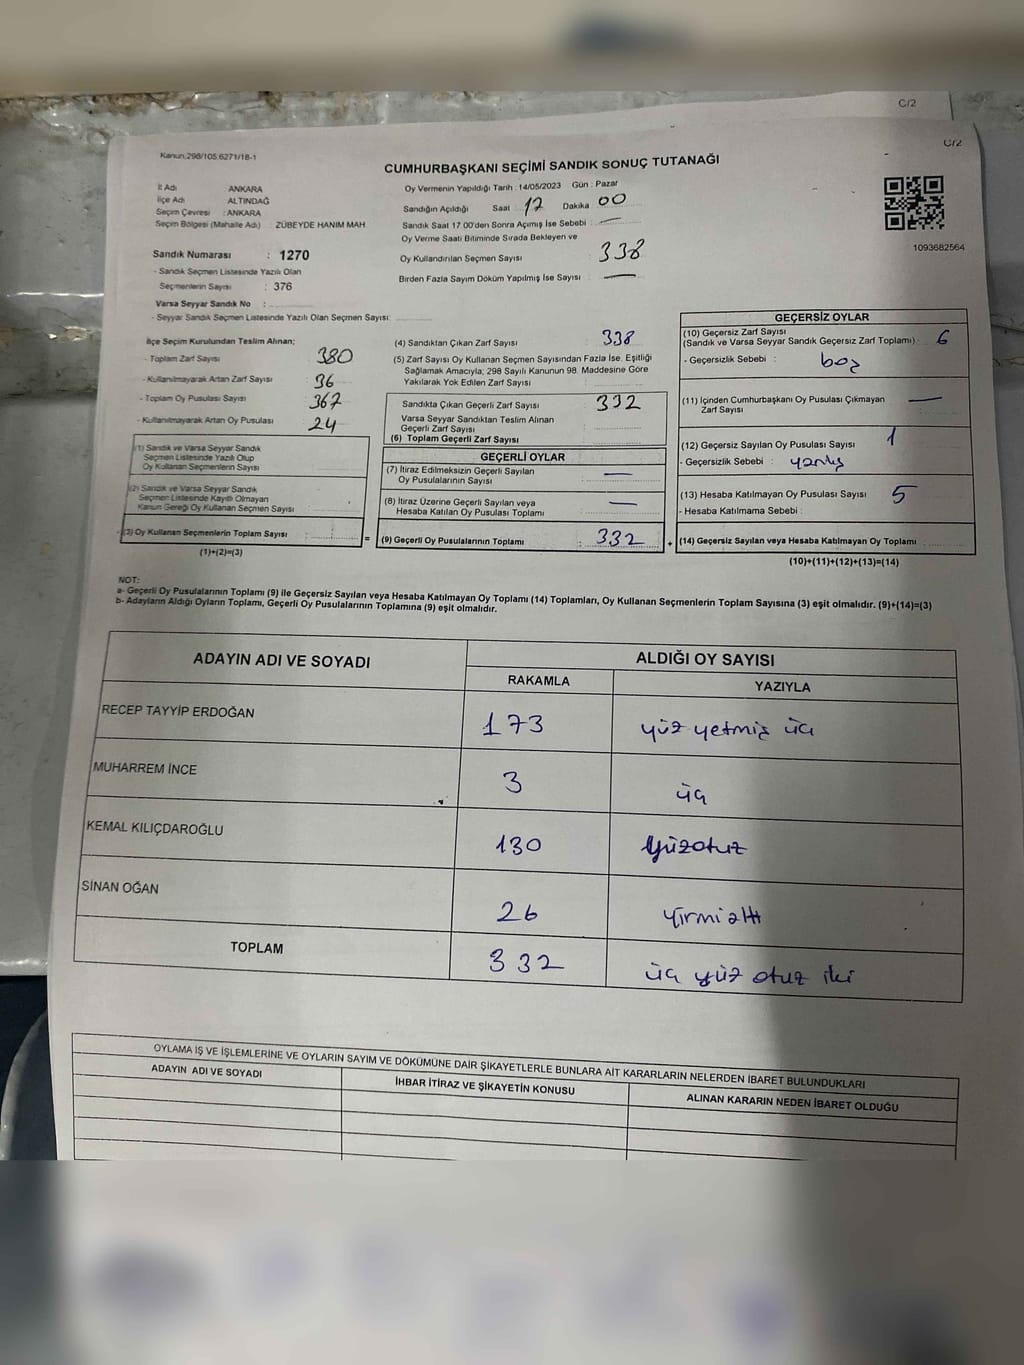 C/2
C/2
Kanun;298/105;6271/18-1
CUMHURBAŞKANI SEÇİMİ SANDIK SONUÇ TUTANAĞI
İl Adı ANKARA
İlçe Adı ALTINDAĞ
Seçim Çevresi : ANKARA
Seçim Bölgesi (Mahalle Adı) : ZÜBEYDE HANIM MAH
Oy Vermenin Yapıldığı Tarih : 14/05/2023 Gün : Pazar
Sandığın Açıldığı Saat 17 Dakika 00
Sandık Saat 17.00'den Sonra Açımış İse Sebebi : —
Oy Verme Saati Bitiminde Sırada Bekleyen ve
Oy Kullandırılan Seçmen Sayısı : 338
Birden Fazla Sayım Döküm Yapılmış İse Sayısı : —
1093682564
Sandık Numarası : 1270
- Sandık Seçmen Listesinde Yazılı Olan
Seçmenlerin Sayısı : 376
Varsa Seyyar Sandık No :
- Seyyar Sandık Seçmen Listesinde Yazılı Olan Seçmen Sayısı:
İlçe Seçim Kurulundan Teslim Alınan;
- Toplam Zarf Sayısı 380
- Kullanılmayarak Artan Zarf Sayısı 36
- Toplam Oy Pusulası Sayısı 367
- Kullanılmayarak Artan Oy Pusulası 24
(1) Sandık ve Varsa Seyyar Sandık
Seçmen Listesinde Yazılı Olup
Oy Kullanan Seçmenlerin Sayısı
(2) Sandık ve Varsa Seyyar Sandık
Seçmen Listesinde Kayıtlı Olmayan
Kanun Gereği Oy Kullanan Seçmen Sayısı
(3) Oy Kullanan Seçmenlerin Toplam Sayısı =
(1)+(2)=(3)
(4) Sandıktan Çıkan Zarf Sayısı : 338
(5) Zarf Sayısı Oy Kullanan Seçmen Sayısından Fazla İse, Eşitliği
Sağlamak Amacıyla; 298 Sayılı Kanunun 98. Maddesine Göre
Yakılarak Yok Edilen Zarf Sayısı
Sandıkta Çıkan Geçerli Zarf Sayısı : 332
Varsa Seyyar Sandıktan Teslim Alınan
Geçerli Zarf Sayısı
(6) Toplam Geçerli Zarf Sayısı
GEÇERLİ OYLAR
(7) İtiraz Edilmeksizin Geçerli Sayılan
Oy Pusulalarının Sayısı : —
(8) İtiraz Üzerine Geçerli Sayılan veya
Hesaba Katılan Oy Pusulası Toplamı : —
(9) Geçerli Oy Pusulalarının Toplamı : 332 +
GEÇERSİZ OYLAR
(10) Geçersiz Zarf Sayısı
(Sandık ve Varsa Seyyar Sandık Geçersiz Zarf Toplamı) : 6
- Geçersizlik Sebebi : boş
(11) İçinden Cumhurbaşkanı Oy Pusulası Çıkmayan
Zarf Sayısı : —
(12) Geçersiz Sayılan Oy Pusulası Sayısı : 1
- Geçersizlik Sebebi : yanlış
(13) Hesaba Katılmayan Oy Pusulası Sayısı : 5
- Hesaba Katılmama Sebebi :
(14) Geçersiz Sayılan veya Hesaba Katılmayan Oy Toplamı :
(10)+(11)+(12)+(13)=(14)
NOT:
a- Geçerli Oy Pusulalarının Toplamı (9) ile Geçersiz Sayılan veya Hesaba Katılmayan Oy Toplamı (14) Toplamları, Oy Kullanan Seçmenlerin Toplam Sayısına (3) eşit olmalıdır. (9)+(14)=(3)
b- Adayların Aldığı Oyların Toplamı, Geçerli Oy Pusulalarının Toplamına (9) eşit olmalıdır.
ADAYIN ADI VE SOYADI ALDIĞI OY SAYISI
RAKAMLA YAZIYLA
RECEP TAYYİP ERDOĞAN 173 yüz yetmiş üç
MUHARREM İNCE 3 üç
KEMAL KILIÇDAROĞLU 130 yüzotuz
SİNAN OĞAN 26 yirmi altı
TOPLAM 332 üç yüz otuz iki
OYLAMA İŞ VE İŞLEMLERİNE VE OYLARIN SAYIM VE DÖKÜMÜNE DAİR ŞİKAYETLERLE BUNLARA AİT KARARLARIN NELERDEN İBARET BULUNDUKLARI
ADAYIN ADI VE SOYADI İHBAR İTİRAZ VE ŞİKAYETİN KONUSU ALINAN KARARIN NEDEN İBARET OLDUĞU